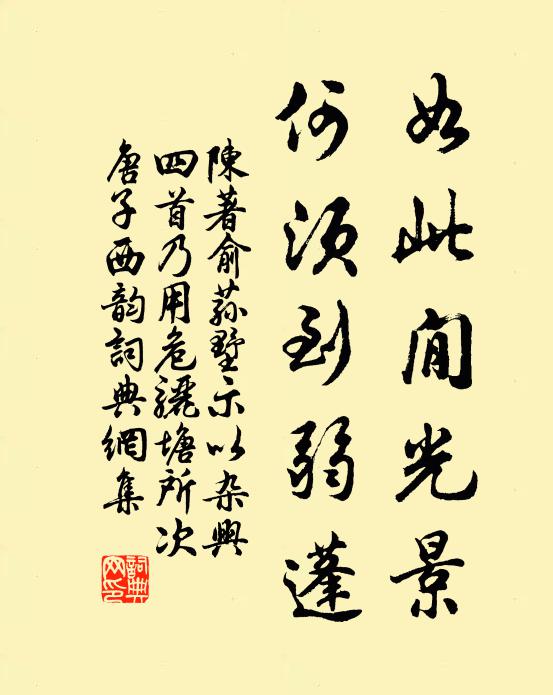 如此閒光景
何須到弱蓬
陳著俞蓀墅示以杂興
四首乃用危驪塘所次
唐子西韵詞典網集
詞典網印